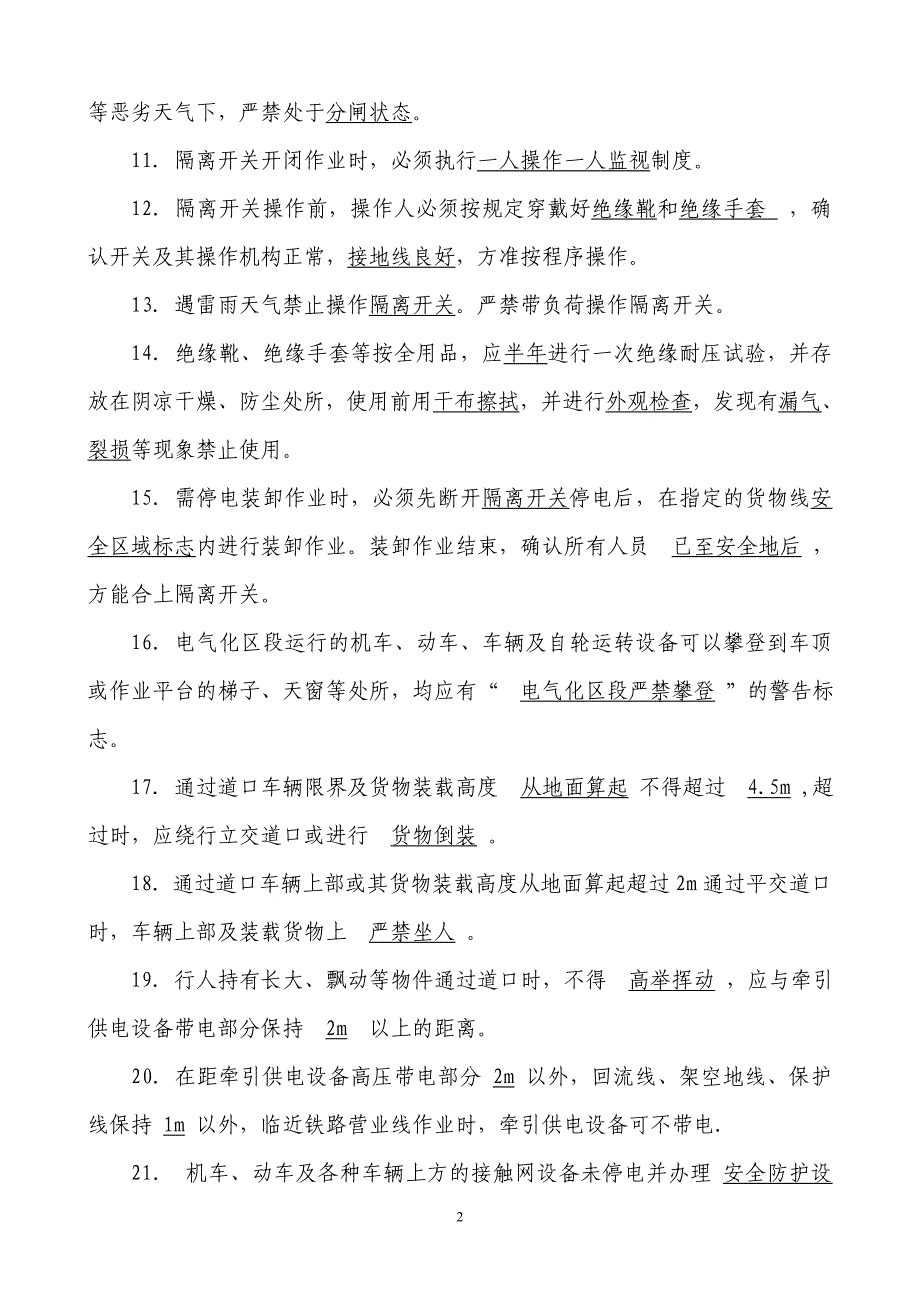 等恶劣天气下，严禁处于分闸状态。
11．隔离开关开闭作业时，必须执行一人操作一人监视制度。
12．隔离开关操作前，操作人必须按规定穿戴好绝缘靴和绝缘手套 ，确
认开关及其操作机构正常，接地线良好，方准按程序操作。
13．遇雷雨天气禁止操作隔离开关。严禁带负荷操作隔离开关。
14．绝缘靴、绝缘手套等按全用品，应半年进行一次绝缘耐压试验，并存
放在阴凉干燥、防尘处所，使用前用干布擦拭，并进行外观检查，发现有漏气、
裂损等现象禁止使用。
15．需停电装卸作业时，必须先断开隔离开关停电后，在指定的货物线安
全区域标志内进行装卸作业。装卸作业结束，确认所有人员 已至安全地后 ，
方能合上隔离开关。
16．电气化区段运行的机车、动车、车辆及自轮运转设备可以攀登到车顶
或作业平台的梯子、天窗等处所，均应有“ 电气化区段严禁攀登 ”的警告标
志。
17．通过道口车辆限界及货物装载高度 从地面算起 不得超过 4.5m ,超
过时，应绕行立交道口或进行 货物倒装 。
18．通过道口车辆上部或其货物装载高度从地面算起超过2m通过平交道口
时，车辆上部及装载货物上 严禁坐人 。
19．行人持有长大、飘动等物件通过道口时，不得 高举挥动 ，应与牵引
供电设备带电部分保持 2m 以上的距离。
20．在距牵引供电设备高压带电部分 2m 以外，回流线、架空地线、保护
线保持 1m 以外，临近铁路营业线作业时，牵引供电设备可不带电.
21． 机车、动车及各种车辆上方的接触网设备未停电并办理 安全防护设
2